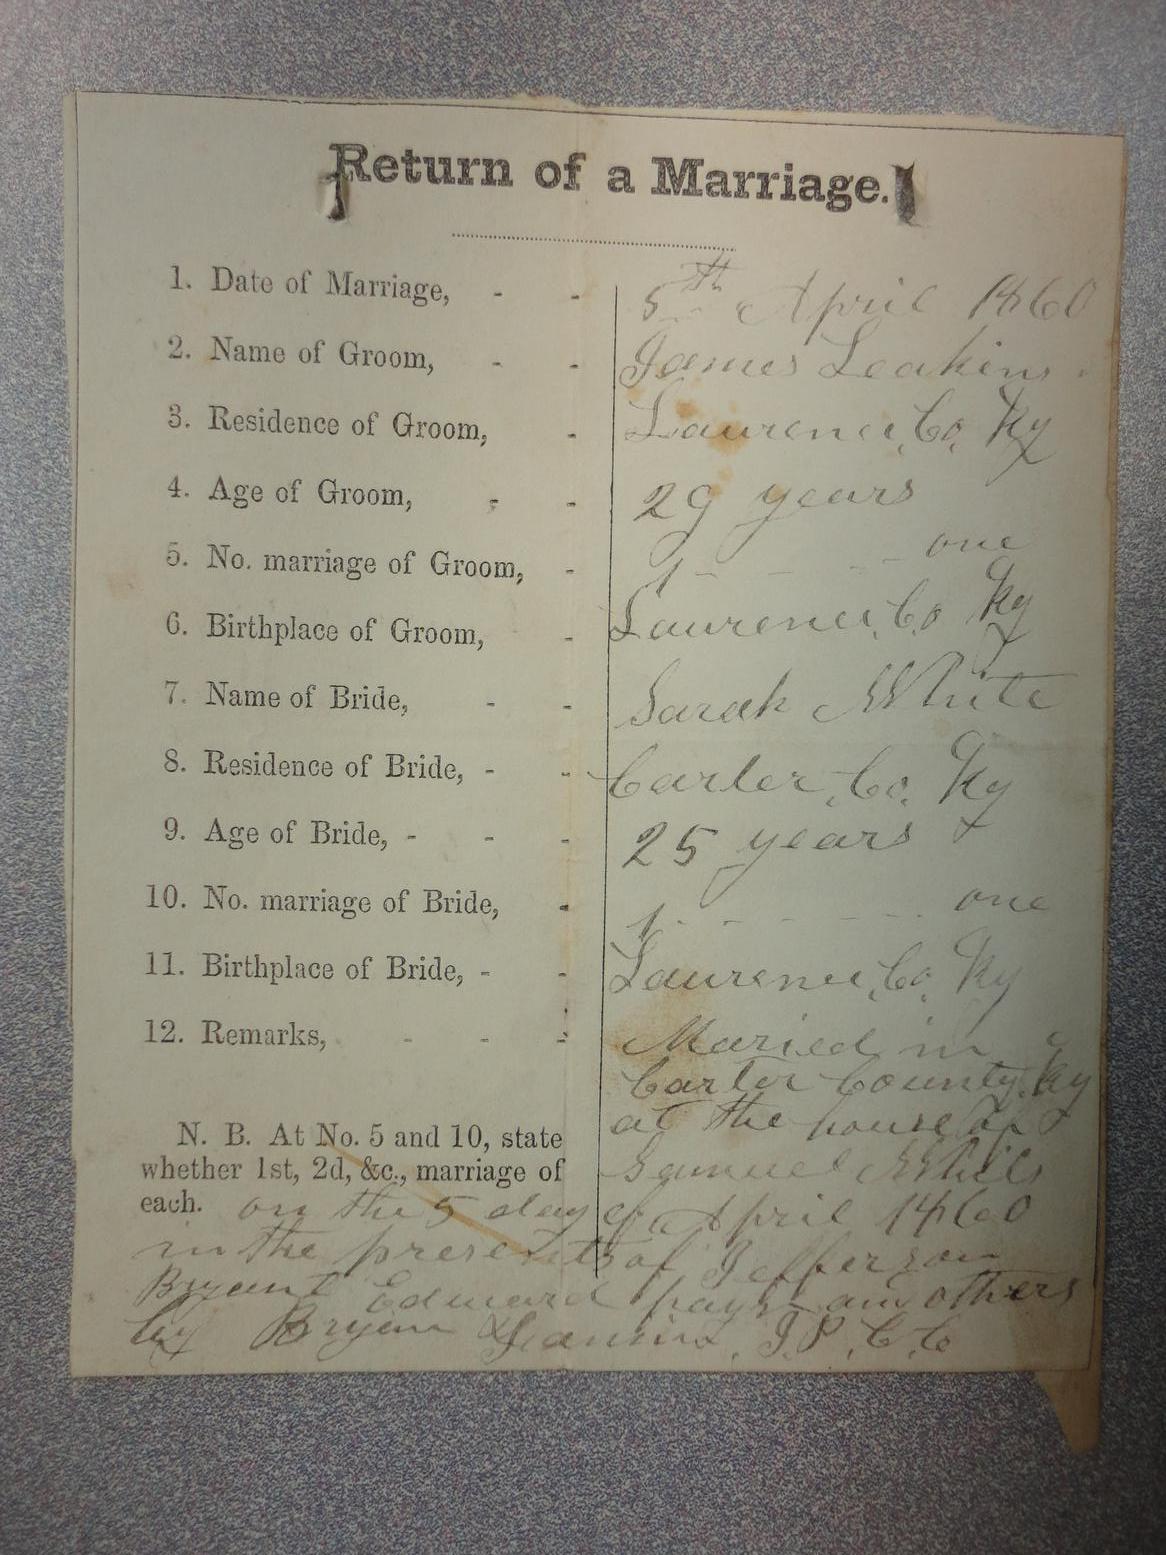 Return of a Marriage.
1. Date of Marriage, - - 5th April 1860
2. Name of Groom, - - James Leakins
3. Residence of Groom, - Laurence, Co, Ky
4. Age of Groom, - - 29 years
5. No. marriage of Groom, - 1 - - - - one
6. Birthplace of Groom, - Laurence, Co Ky
7. Name of Bride, - - Sarah White
8. Residence of Bride, - - Carter, Co, Ky
9. Age of Bride, - - - 25 years
10. No. marriage of Bride, - 1 - - - - - one
11. Birthplace of Bride, - - Laurence, Co, Ky
12. Remarks, - - - Maried in
Carter County, Ky
at the house of
N. B. At No. 5 and 10, state
whether 1st, 2d, &c., marriage of Samuel
each. on the 5 day of April 1860
in the of Jefferson
Bryant Edward pays an others
by Bryan J. P. C. C